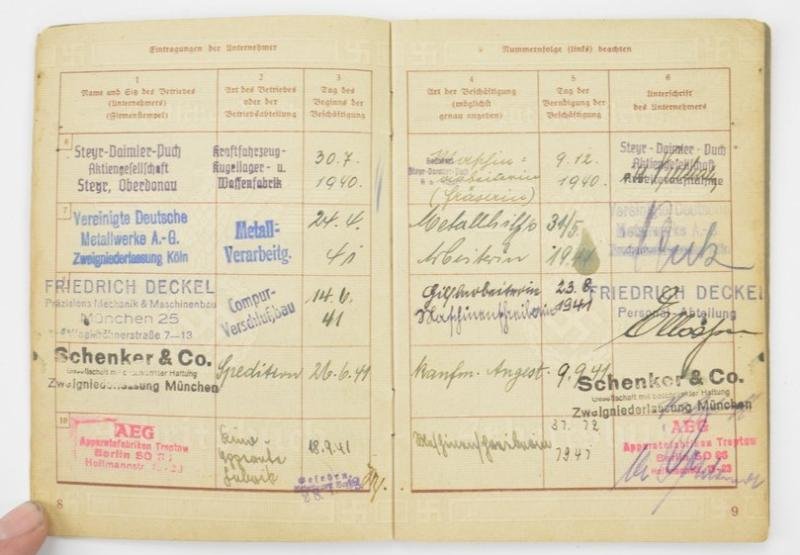 Eintragungen der Unternehmer
1
Name und Sitz des Betriebes
(Unternehmers)
(Firmenstempel)
2
Art des Betriebes
oder der
Betriebsabteilung
3
Tag des
Beginns der
Beschäftigung
6
Steyr-Daimler-Puch
Aktiengesellschaft
Steyr, Oberdonau
Kraftfahrzeug-
Kugellager- u.
Waffenfabrik
30.7.
1940.
7
Vereinigte Deutsche
Metallwerke A.-G.
Zweigniederlassung Köln
Metall-
Verarbeitg.
24.4.
41
FRIEDRICH DECKEL
Präzisions Mechanik & Maschinenbau
München 25
7–13
Compur-
Verschlußbau
14.6.
41
Schenker & Co.
Gesellschaft mit beschränkter Haftung
Zweigniederlassung München
Spedition
26.6.41
10
AEG
Apparatefabriken Treptow
Berlin SO
Hoffmannstr. 15-23
18.9.41
8
Nummernfolge (links) beachten
4
Art der Beschäftigung
(möglichst
genau angeben)
5
Tag der
Beendigung der
Beschäftigung
6
Unterschrift
des Unternehmers
9.12.
1940.
Steyr-Daimler-Puch
Aktiengesellschaft
Arbeiteraufnahme
Metallhilfs
Arbeiterin
31/5.
1941
Vereinigte Deutsche
Metallwerke A.-G.
Hilfsarbeiterin
Maschinenschreiberin
1941
FRIEDRICH DECKEL
Personal-Abteilung
Kaufm. Angest.
9.9.41
Schenker & Co.
Gesellschaft mit beschränkter Haftung
Zweigniederlassung München
Maschinenschreiberin
AEG
Apparatefabriken Treptow
Berlin SO 36
Hoffmannstr. 15-23
9